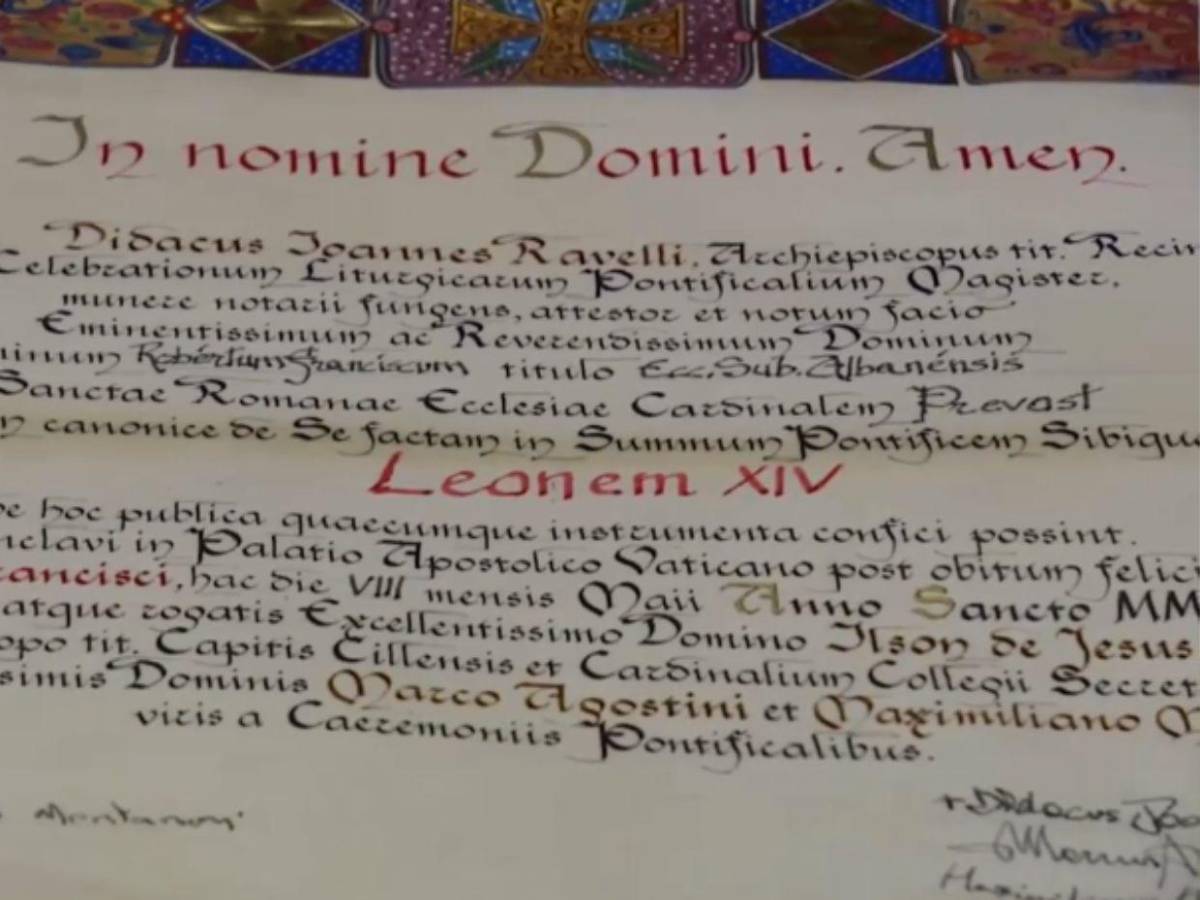 In nomine Domini. Amen.
Didacus Ioannes Ravelli, Archiepiscopus tit. Recin
Celebrationum Liturgicarum Pontificalium Magister,
munere notarii fungens, attestor et notum facio
Eminentissimum ac Reverendissimum Dominum
inum Robértum Franciscum titulo Ecc. Sub. Albanénsis
Sanctae Romanae Ecclesiae Cardinalem Prevost
m canonice de Se factam in Summum Pontificem Sibiqu
Leonem XIV
de hoc publica quaecumque instrumenta confici possint.
nclavi in Palatio Apostolico Vaticano post obitum felici
rancisci, hac die VIII mensis Maii Anno Sancto MM
atque rogatis Excellentissimo Domino Ilson de Jesus
opo tit. Capitis Cillensis et Cardinalium Collegii Secret
simis Dominis Marco Agostini et Maximiliano M
viris a Caeremoniis Pontificalibus.
+ Didacus